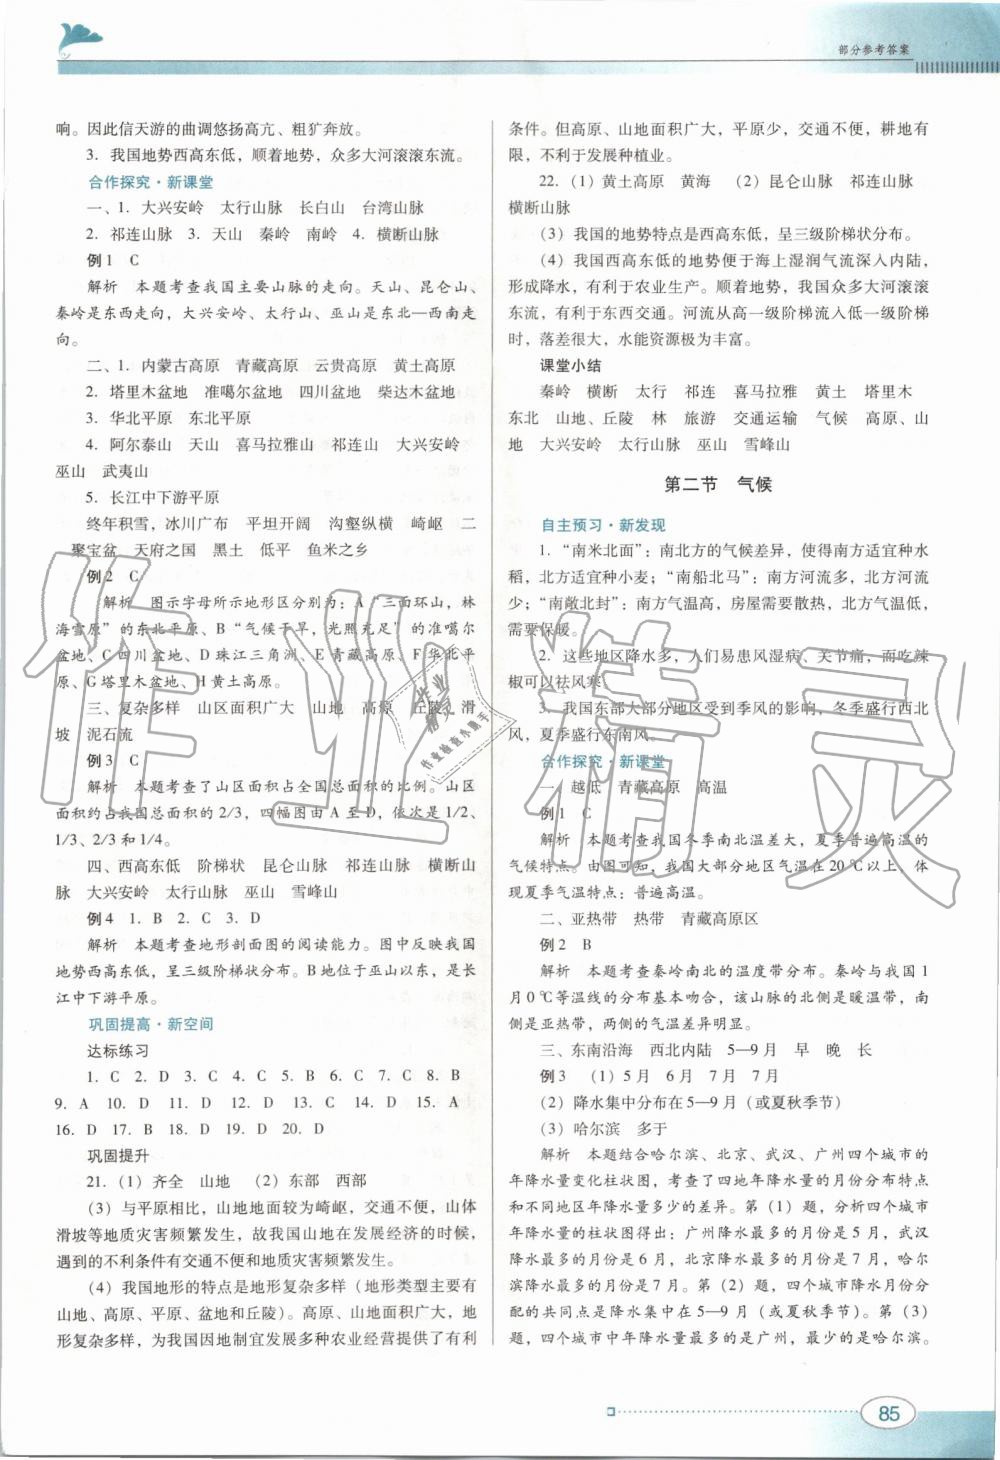 部分参考答案
响。因此信天游的曲调悠扬高亢、粗犷奔放。
3. 我国地势西高东低，顺着地势，众多大河滚滚东流。
合作探究·新课堂
一、1. 大兴安岭 太行山脉 长白山 台湾山脉
2. 祁连山脉 3. 天山 秦岭 南岭 4. 横断山脉
例1 C
解析 本题考查我国主要山脉的走向。天山、昆仑山、
秦岭是东西走向，大兴安岭、太行山、巫山是东北—西南走
向。
二、1. 内蒙古高原 青藏高原 云贵高原 黄土高原
2. 塔里木盆地 准噶尔盆地 四川盆地 柴达木盆地
3. 华北平原 东北平原
4. 阿尔泰山 天山 喜马拉雅山 祁连山 大兴安岭
巫山 武夷山
5. 长江中下游平原
终年积雪，冰川广布 平坦开阔 沟壑纵横 崎岖 二
聚宝盆 天府之国 黑土 低平 鱼米之乡
例2 C
解析 图示字母所示地形区分别为：A“三面环山，林
海雪原”的东北平原、B“气候干旱，光照充足”的准噶尔
盆地、C四川盆地、D珠江三角洲、E青藏高原、F华北平
原、G塔里木盆地、H黄土高原。
三、复杂多样 山区面积广大 山地 高原 丘陵 滑
坡 泥石流
例3 C
解析 本题考查了山区面积占全国总面积的比例。山区
面积约占我国总面积的2/3，四幅图由A至D，依次是1/2、
1/3、2/3和1/4。
四、西高东低 阶梯状 昆仑山脉 祁连山脉 横断山
脉 大兴安岭 太行山脉 巫山 雪峰山
例4 1. B 2. C 3. D
解析 本题考查地形剖面图的阅读能力。图中反映我国
地势西高东低，呈三级阶梯状分布。B地位于巫山以东，是长
江中下游平原。
巩固提高·新空间
达标练习
1. C 2. D 3. C 4. D 5. C 6. C 7. C 8. B
9. A 10. D 11. D 12. D 13. C 14. D 15. A
16. D 17. B 18. D 19. D 20. D
巩固提升
21.（1）齐全 山地 （2）东部 西部
（3）与平原相比，山地地面较为崎岖，交通不便，山体
滑坡等地质灾害频繁发生，故我国山地在发展经济的时候，
遇到的不利条件有交通不便和地质灾害频繁发生。
（4）我国地形的特点是地形复杂多样（地形类型主要有
山地、高原、平原、盆地和丘陵）。高原、山地面积广大，地
形复杂多样，为我国因地制宜发展多种农业经营提供了有利
条件。但高原、山地面积广大，平原少，交通不便，耕地有
限，不利于发展种植业。
22.（1）黄土高原 黄海 （2）昆仑山脉 祁连山脉
横断山脉
（3）我国的地势特点是西高东低，呈三级阶梯状分布。
（4）我国西高东低的地势便于海上湿润气流深入内陆，
形成降水，有利于农业生产。顺着地势，我国众多大河滚滚
东流，有利于东西交通。河流从高一级阶梯流入低一级阶梯
时，落差很大，水能资源极为丰富。
课堂小结
秦岭 横断 太行 祁连 喜马拉雅 黄土 塔里木
东北 山地、丘陵 林 旅游 交通运输 气候 高原、山
地 大兴安岭 太行山脉 巫山 雪峰山
第二节 气候
自主预习·新发现
1. “南米北面”：南北方的气候差异，使得南方适宜种水
稻，北方适宜种小麦；“南船北马”：南方河流多，北方河流
少；“南敞北封”：南方气温高，房屋需要散热，北方气温低，
需要保暖。
2. 这些地区降水多，人们易患风湿病、关节痛，而吃辣
椒可以祛风寒。
3. 我国东部大部分地区受到季风的影响，冬季盛行西北
风，夏季盛行东南风。
合作探究·新课堂
一、越低 青藏高原 高温
例1 C
解析 本题考查我国冬季南北温差大，夏季普遍高温的
气候特点。由图可知，我国大部分地区气温在20℃以上，体
现夏季气温特点：普遍高温。
二、亚热带 热带 青藏高原区
例2 B
解析 本题考查秦岭南北的温度带分布。秦岭与我国1
月0℃等温线的分布基本吻合，该山脉的北侧是暖温带，南
侧是亚热带，两侧的气温差异明显。
三、东南沿海 西北内陆 5—9月 早 晚 长
例3 （1）5月 6月 7月 7月
（2）降水集中分布在5—9月（或夏秋季节）
（3）哈尔滨 多于
解析 本题结合哈尔滨、北京、武汉、广州四个城市的
年降水量变化柱状图，考查了四地年降水量的月份分布特点
和不同地区年降水量多少的差异。第（1）题，分析四个城市
年降水量的柱状图得出：广州降水最多的月份是5月，武汉
降水最多的月份是6月，北京降水最多的月份是7月，哈尔
滨降水最多的月份是7月。第（2）题，四个城市降水月份分
配的共同点是降水集中在5—9月（或夏秋季节）。第（3）
题，四个城市中年降水量最多的是广州，最少的是哈尔滨。
85
作业精灵